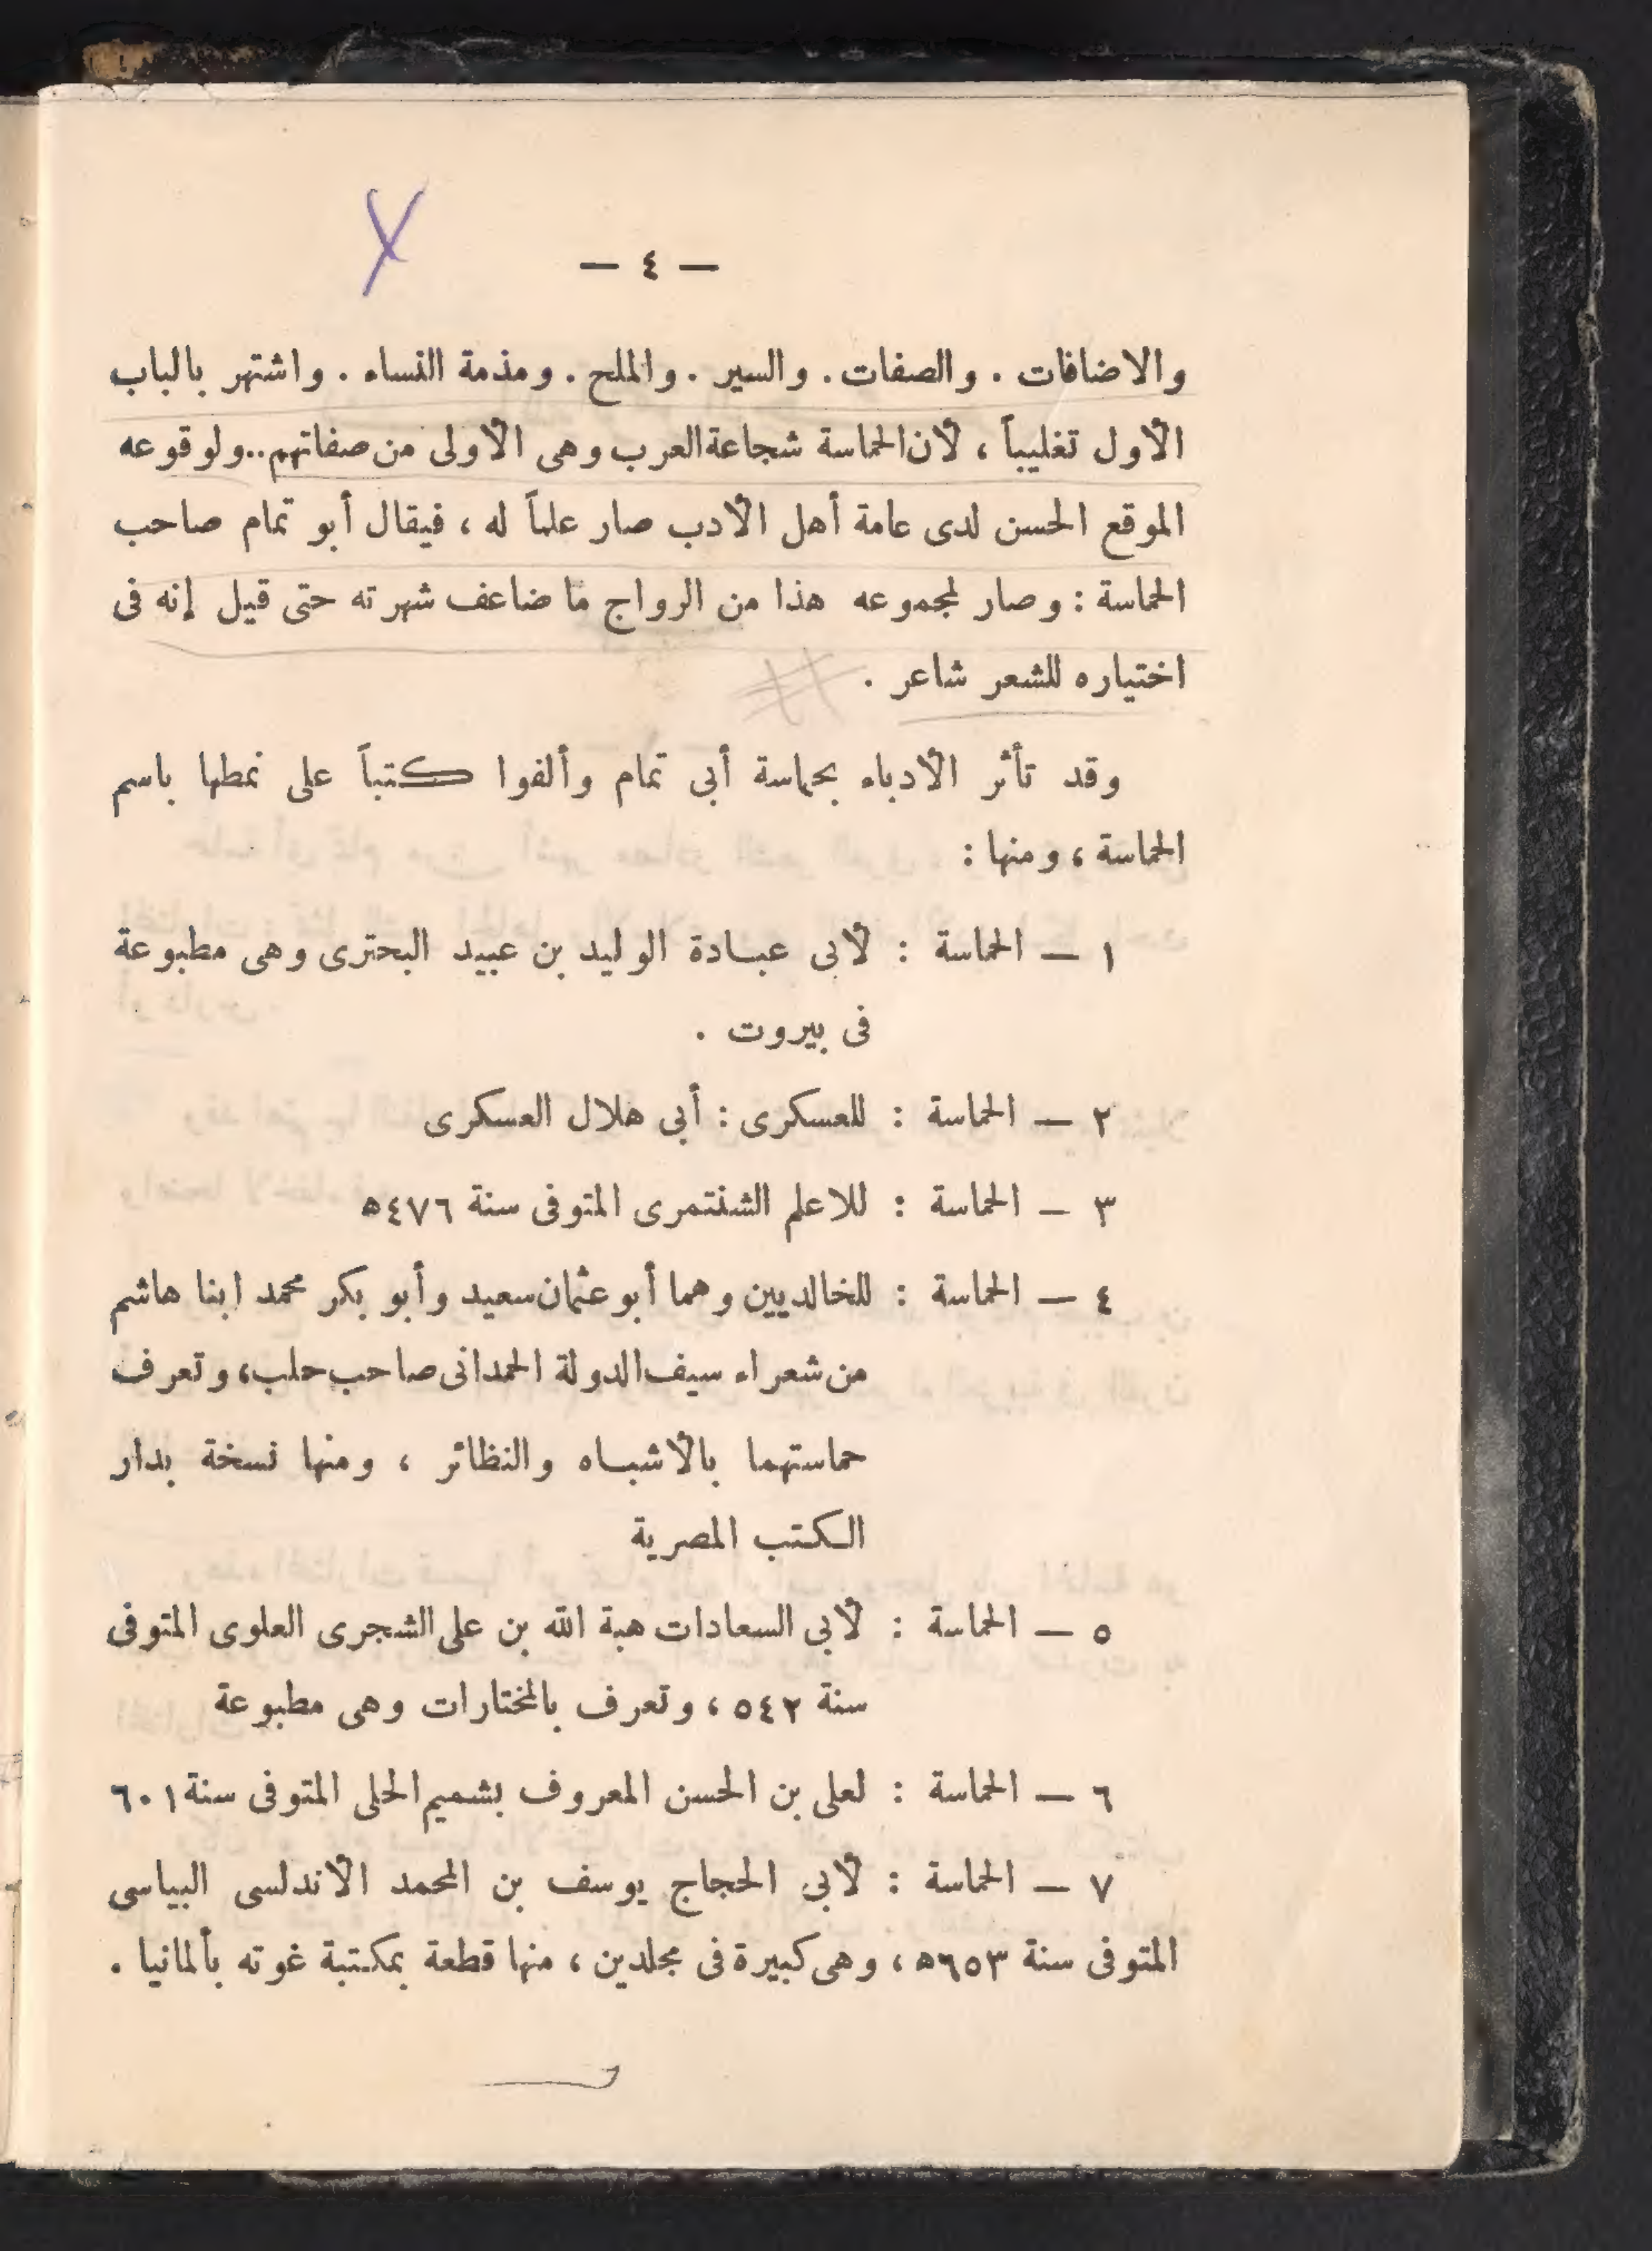 — ٤ —
والاضافات . والصفات . والسير . والملح . ومذمة النساء . واشتهر بالباب
الأول تغليباً ، لأن الحماسة شجاعة العرب وهى الأولى من صفاتهم..ولوقوعه
الموقع الحسن لدى عامة أهل الأدب صار علماً له ، فيقال أبو تمام صاحب
الحماسة : وصار لمجموعه هذا من الرواج ما ضاعف شهرته حتى قيل إنه فى
اختياره للشعر شاعر .
وقد تأثر الأدباء بحماسة أبى تمام وألفوا كتباً على نمطها باسم
الحماسة ، ومنها :
١ — الحماسة : لأبى عبادة الوليد بن عبيد البحترى وهى مطبوعة
فى بيروت .
٢ — الحماسة : للعسكرى : أبى هلال العسكرى
٣ — الحماسة : للاعلم الشنتمرى المتوفى سنة ٤٧٦ه
٤ — الحماسة : للخالديين وهما أبو عثمان سعيد وأبو بكر محمد ابنا هاشم
من شعراء سيف الدولة الحمدانى صاحب حلب ، وتعرف
حماستهما بالأشباه والنظائر ، ومنها نسخة بدار
الكتب المصرية
٥ — الحماسة : لأبى السعادات هبة الله بن على الشجرى العلوى المتوفى
سنة ٥٤٢ ، وتعرف بالمختارات وهى مطبوعة
٦ — الحماسة : لعلى بن الحسن المعروف بشميم الحلى المتوفى سنة ٦٠١
٧ — الحماسة : لأبى الحجاج يوسف بن المحمد الأندلسى البياسى
المتوفى سنة ٦٥٣ه ، وهى كبيرة فى مجلدين ، منها قطعة بمكتبة غوته بألمانيا .